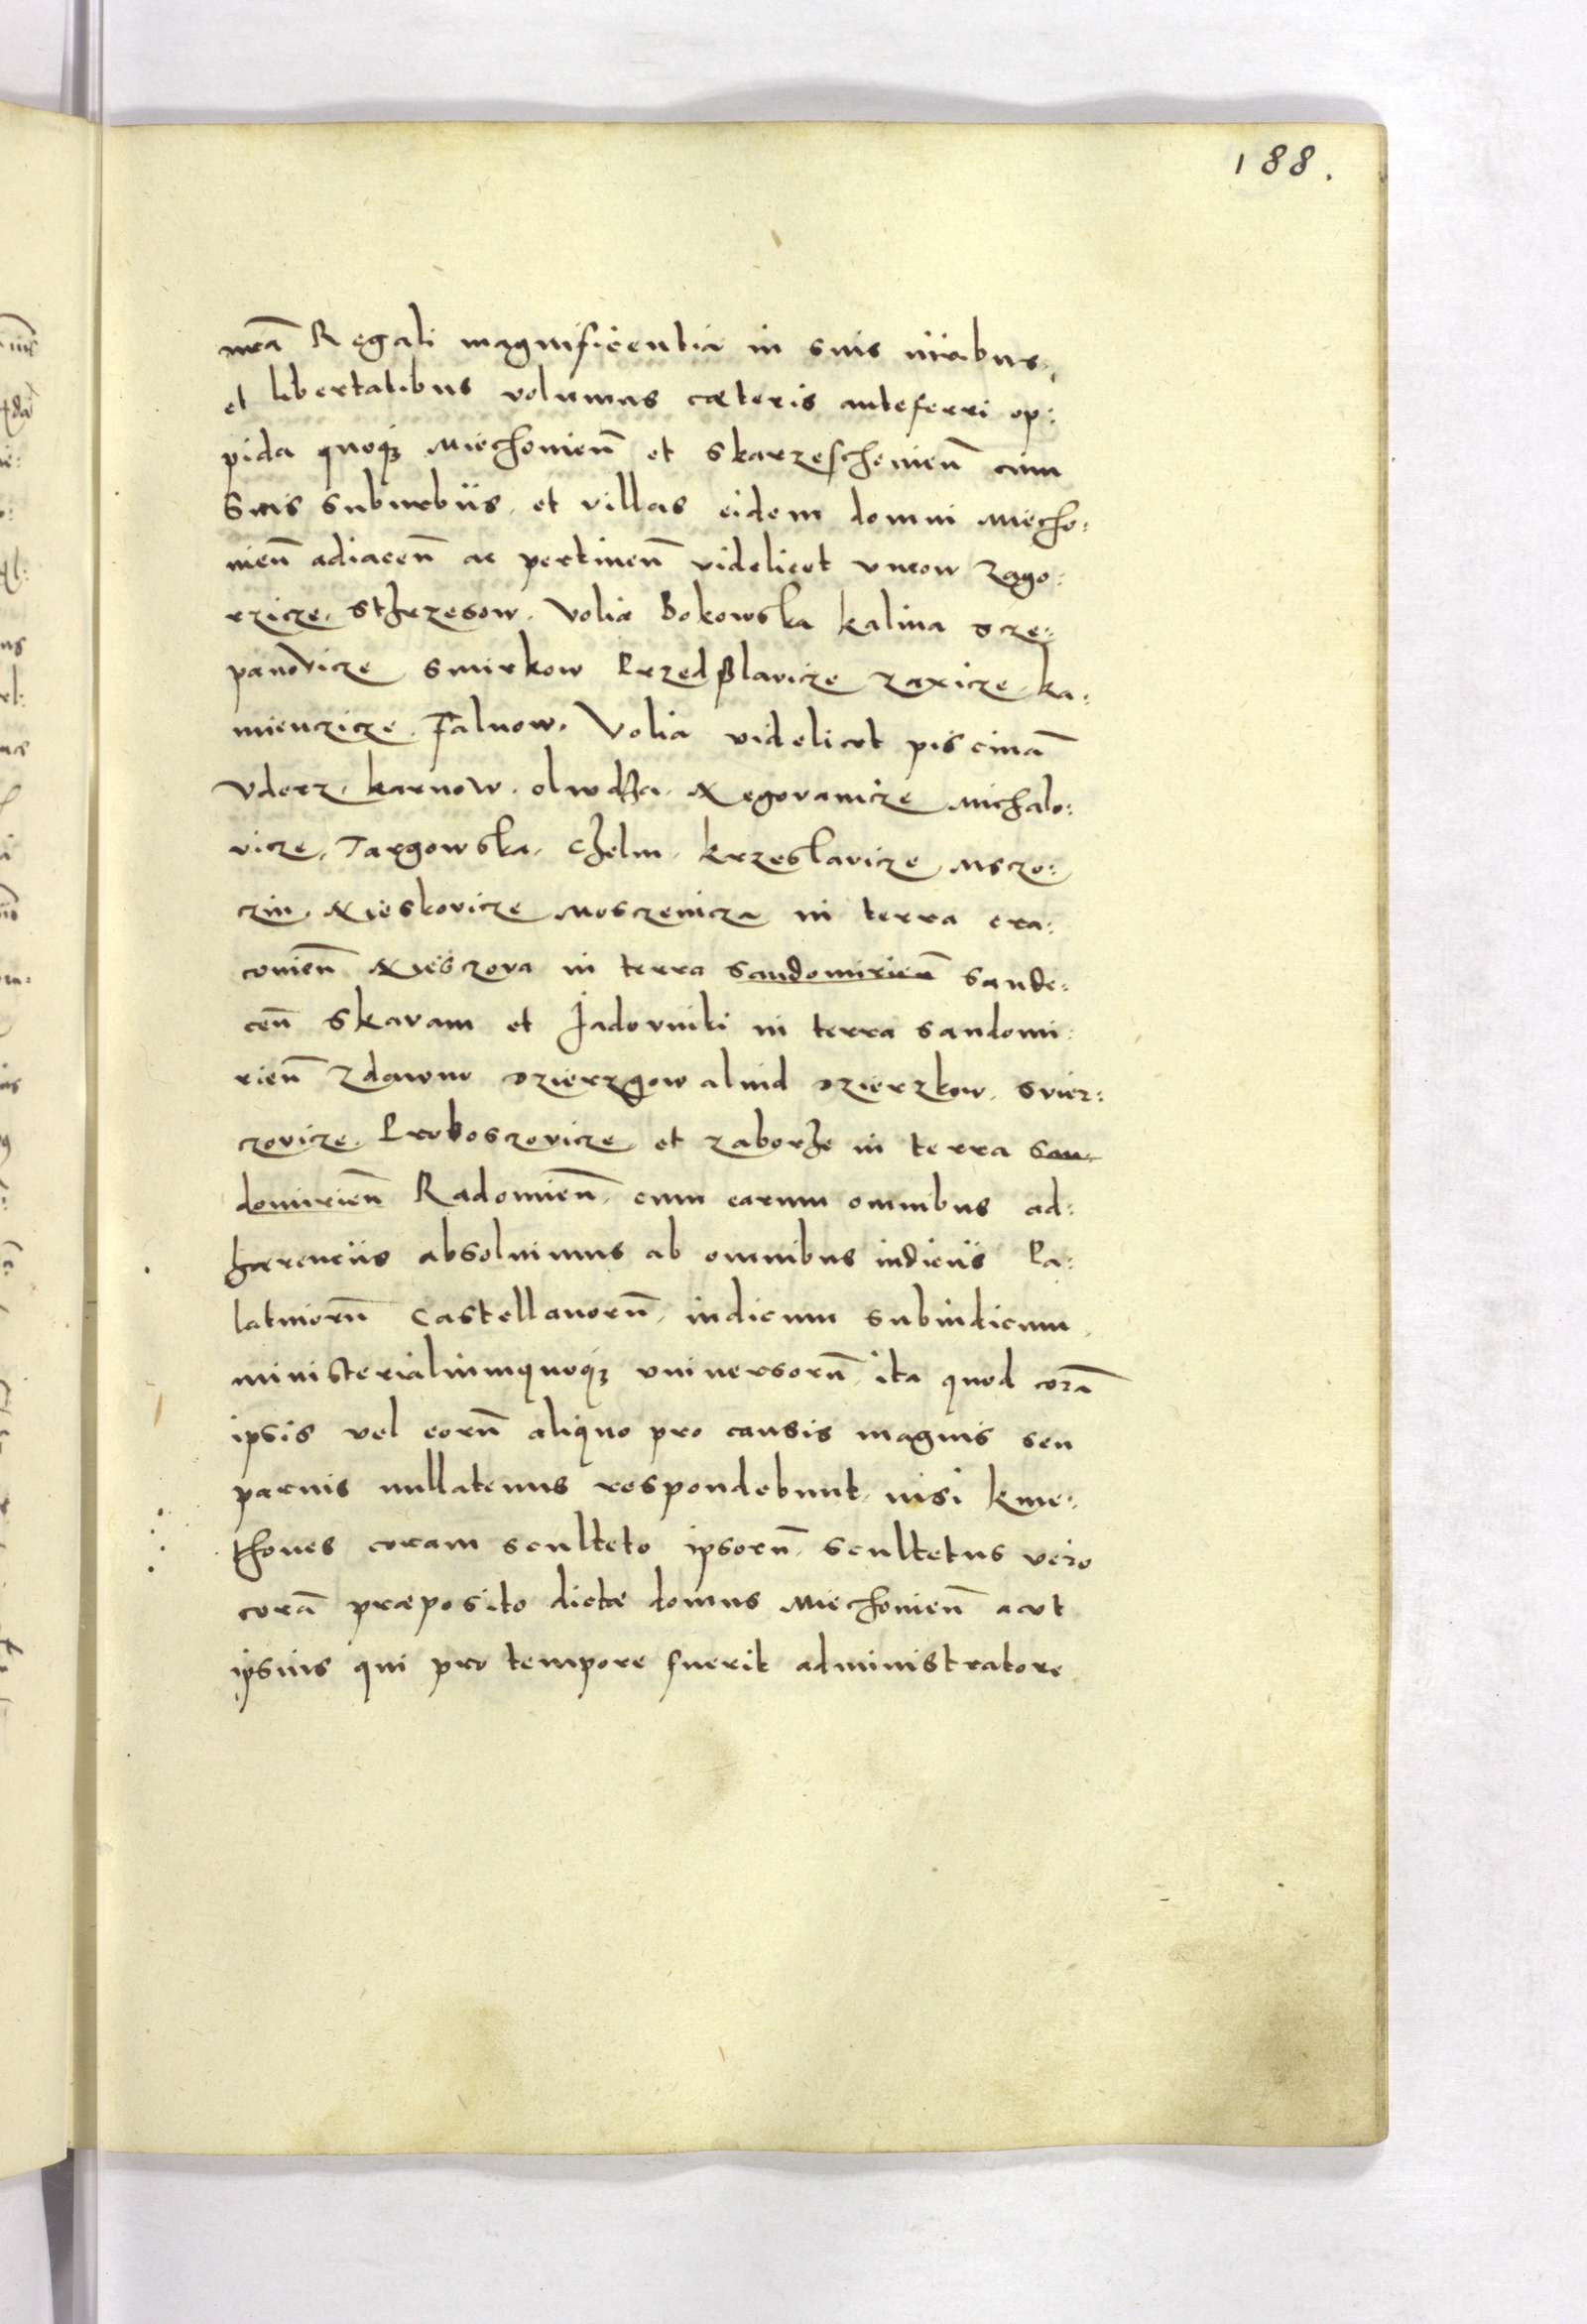 188.
nrã Regali magnificentia in suis iuribus,
et libertatibus volumus cæteris anteferri op:
pida quoqꝫ Miechouien̄ et Skarzeschouien̄ cum
Suis suburbiis, et villas eidem domui Miecho:
uien̄ adiacen̄ ac pertinen̄ videlicet Vneow Zago:
rzicze, Sthrzesow, Volia Bokowska Kalina Scze:
panovicze Smirkow Przedslavicze Zaxicze, Ka:
mienczicze, Falnow, Volia videlicet piscinã
Uderz, Karnow, olwdza, Xegovanicze Michalo:
vicze, Targowska, Chelm, Krzeslavicze, Msczo:
czin, Xieskovicze Mosczenicza in terra cra:
couien̄ Xieszova in terra Sandomirien̄ Sande:
cen̄ Skavam et Jadovniki in terra Sandomi:
rien̄ Zdawno Dzierzgow aliud Dzierzkow, Svier:
czovicze, Proboszovicze, et Zaborze in terra San:
domirien̄ Radomien̄, cum earum omnibus ad:
hærenciis absoluimus ab omnibus iudiciis Pa:
latinorū Castellanorū, iudicum subiudicum,
ministerialiumquoqꝫ vniuersorū, ita quod corã
ipsis vel eorū aliquo pro causis magnis seu
paruis nullatenus respondebunt, nisi kme:
thones coram sculteto ipsorū, scultetus vero
corã præposito dictæ domus Miechouien̄ aut
ipsius qui pro tempore fuerit administratore